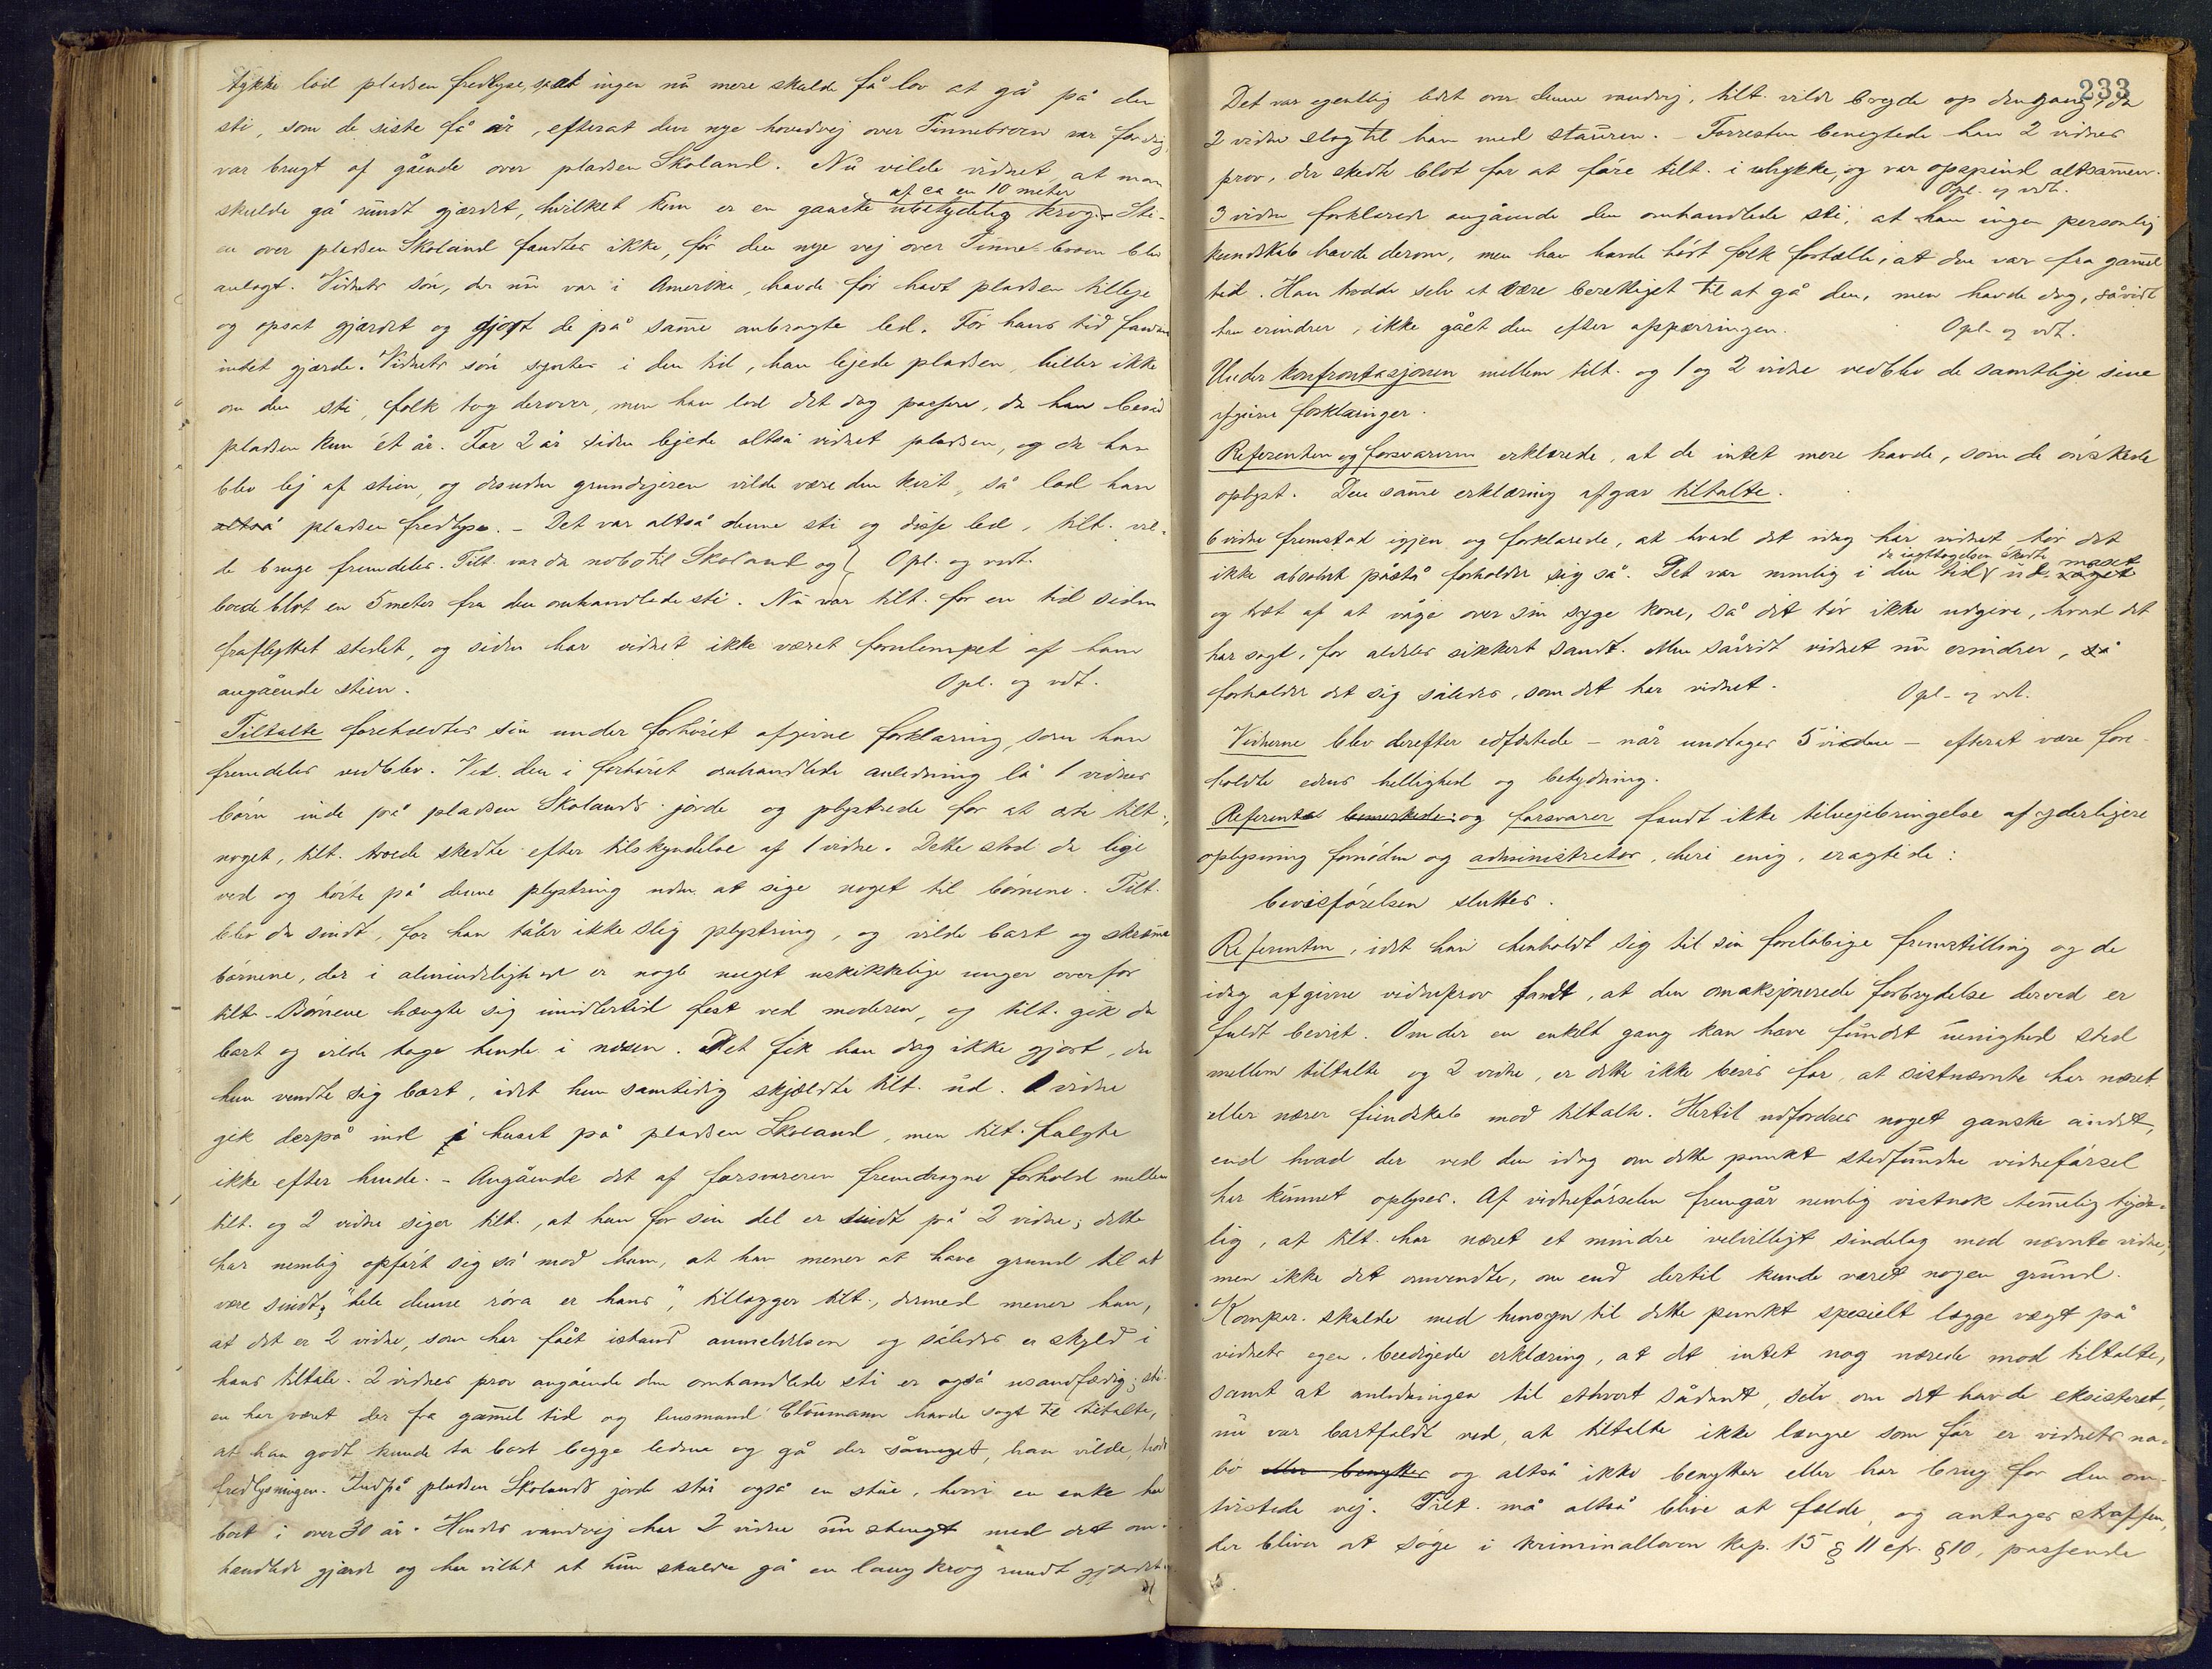 tykke lod pladsen fredlyse, så at ingen nu mere skulde få lov at gå på den
sti, som de siste få år, efterat den nye hovedvej over Tinnebroen var færdig,
var brugt af gående over pladsen Skoland. Nu vilde vidnet, at man
skulde gå rundt gjærdet, hvilket kun er en ganske ubetydelig krog af ca en 10 meter. Sti-
en over pladsen Skoland fandtes ikke, før den nye vej over Tinnebroen blev
anlagt. Vidnets søn, der nu var i Amerika, havde før havt pladsen tilleje
og opsat gjærdet og gjort de på samme anbragte led. Før hans tid fandtes
intet gjærde. Vidnets søn syntes i den tid, han lejede pladsen, heller ikke
om den sti, folk tog derover, men han lod det dog passere, da han besad
pladsen kun ét år. For 2 år siden lejede altså vidnet pladsen, og da han
blev lej af stien, og desuden grundejeren vilde være den kvit, så lod han
altså pladsen fredlyse. – Det var altså denne sti og disse led, tilt. vil-
de bruge fremdeles. Tilt. var da nabo til Skoland og Opl. og vedt.
boede blot en 5 meter fra den omhandlede sti. Nu var tilt. for en tid siden
fraflyttet stedet, og siden har vidnet ikke været fornlempet af ham
angående stien. Opl. og vdt.
Tiltalte foreholdtes sin under forhøret afgivne forklaring, som han
fremdeles vedblev. Ved den i forhøret omhandlede anledning lå 1 vidnes
børn inde på pladsen Skolands jorde og plystrede for at erte tilt.,
noget, tilt. troede skedte efter tilskyndelse af 1 vidne. Dette stod da lige
ved og hørte på denne plystring uden at sige noget til børnene. Tilt.
blev da sindt, for han tåler ikke slig plystring, og vilde bort og skræmme
børnene, der i almindelighed er nogle meget uskikkelige unger overfor
tilt. Børnene hængte sig imidlertid fest ved moderen, og tilt. gik da
bort og vilde tage hende i nesen. Det fik han dog ikke gjort, da
hun vendte sig bort, idet hun samtidig skjældte tilt. ud. 1 vidne
gik derpå ind i huset på pladsen Skoland, men tilt. fulgte
ikke efter hende. – Angående det af forsvareren fremdragne forhold mellem
tilt. og 2 vidne siger tilt., at han for sin del er sindt på 2 vidne; dette
har nemlig opført sig så mod ham, at han mener at have grund til at
være sindt; "hele denne røra er hans", tillægger tilt., dermed mener han,
at det er 2 vidne, som har fået istand anmeldelsen og således er skyld i
hans tiltale. 2 vidnes prov angående den omhandlede sti er også usandfærdig; sti-
en har været der fra gammel tid og lensmand Cloumann havde sagt til tiltalte,
at han godt kunde ta bort begge ledene og gå der såmeget, han vilde, trods
fredlysningen. Indpå pladsen Skolands jorde står også en stue, hvori en enke har
boet i over 30 år. Hendes vandvej har 2 vidne nu stengt med det om-
handlede gjærde og har villet at hun skulde gå en lang krog rundt gjærdet.
233
Det var egentlig ledet over denne vandvej, tilt. vilde bryde op dengang, da
2 vidne slog til ham med stauren. – Forresten benegtede han 2 vidnes
prov, der skedte blot for at føre tilt. i ulykke, og var opspind altsammen.
Opl. og vdt.
3 vidne forklarede angående den omhandlede sti, at han ingen personlig
kundskab havde derom, men han havde hørt folk fortælle, at den var fra gammel
tid. Han trodde selv at være berettiget til at gå den, men havde dog, såvidt
han erindrer, ikke gået den efter oppørringen. Opl. og vdt.
Under konfrontasjonen mellem tilt. og 1 og 2 vidne vedblev de samtlige sine
afgivne forklaringer.
Referenten og forsvareren erklærede, at de intet mere havde, som de ønskede
oplyst. Den samme erklæring afgav tiltalte.
6 vidne fremstod igjen og forklarede, at hvad det idag har vidnet tør det
ikke absolut påstå forholder sig så. Det var nemlig i den tid da iagttagelsen skedte ud maset
og træt af at våge over sin syge kone, så det tør ikke udgive, hvad det
har sagt, for aldeles sikkert sandt. Men såvidt vidnet nu erindrer, så
forholder det sig således, som det har vidnet. Opl. og vdt.
Vidnerne blev derefter edfæstede – når undtages 5 vidne – efterat være fore-
holdte edens hellighed og betydning.
Referent bemerkede: og forsvarer fandt ikke tilvejebringelse af yderligere
oplysning fornøden og administrator, heri enig, eragtede:
bevisførelsen sluttes.
Referenten, idet han henholdt sig til sin foreløbige fremstilling og de
idag afgivne vidneprov fandt, at den omaksjonerede forbrydelse derved er
fuldt bevist. Om der en enkelt gang kan have fundet uenighed sted
mellem tiltalte og 2 vidne, er dette ikke bevis for, at sistnævnte har næret
eller nærer fiendskab mod tiltalte. Hertil udfordres noget ganske andet,
end hvad der ved den idag om dette punkt stedfundne vidneførsel
har kunnet oplyses. Af vidneførselen fremgår nemlig vistnok temmelig tyde-
lig, at tilt. har næret et mindre velvilligt sindelag mod nævnte vidne,
men ikke det omvendte, om end dertil kunde været nogen grund.
Kompar. skulde med hensyn til dette punkt spesielt lægge vægt på
vidnets egen beedigede erklæring, at det intet nag nærede mod tiltalte,
samt at anledningen til ethvert sådant, selv om det havde eksisteret,
nu var bortfaldt ved, at tiltalte ikke længre som før er vidnets na-
bo eller benytter og altså ikke benytter eller har brug for den om-
tvistede vej. Tilt. må altså blive at fælde, og antages straffen,
der bliver at søge i kriminalloven kap. 15 § 11 cfr. § 10, passende